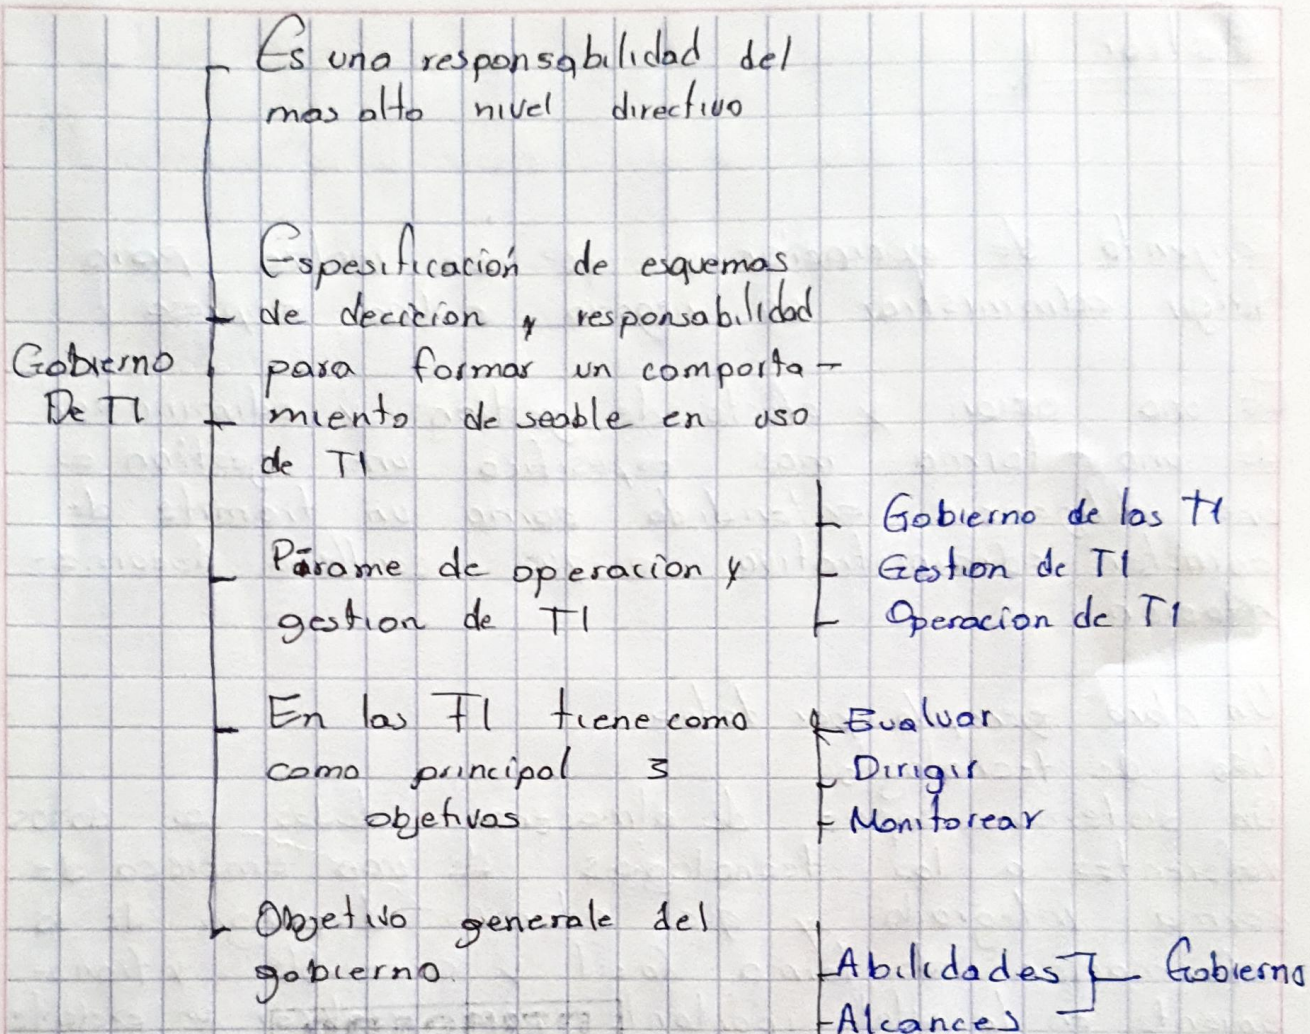 Es una responsabilidad del
mas alto nivel directivo
Espesificación de esquemas
de decicion y responsabilidad
para formar un comporta-
miento de seable en uso
de TI
Gobierno
De TI
Párame de operacion y
gestion de TI
Gobierno de las TI
Gestion de TI
Operacion de TI
En las TI tiene como
como principal 3
objetivos
Evaluar
Dirigir
Monitorear
Objetivo generale del
gobierno.
Abilidades
Alcances
Gobierno